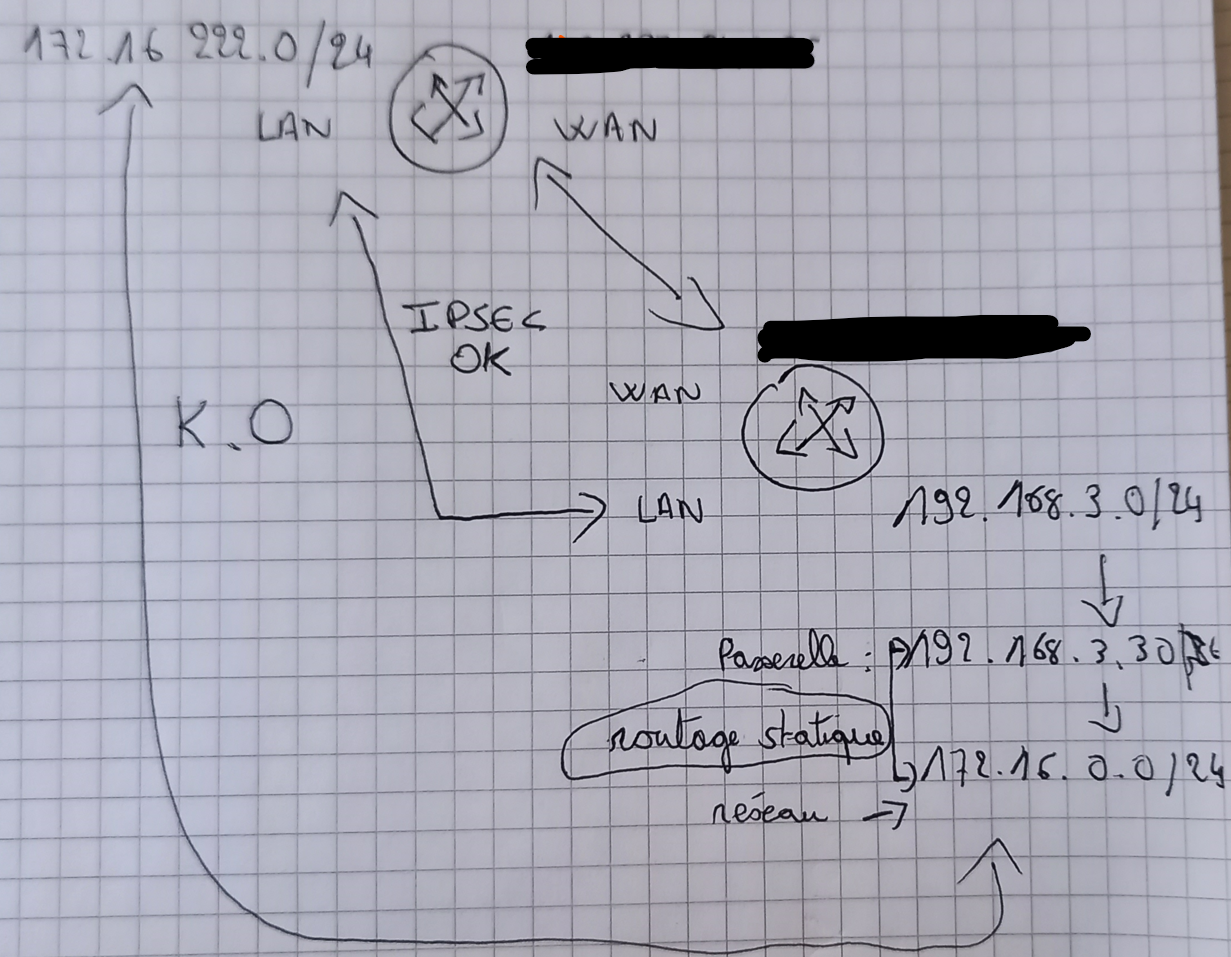 172.16 222.0/24
LAN
WAN
IPSEC
OK
WAN
K.O
LAN
192.168.3.0/24
Passerelle : 192.168.3.30
routage statique
172.16.0.0/24
réseau